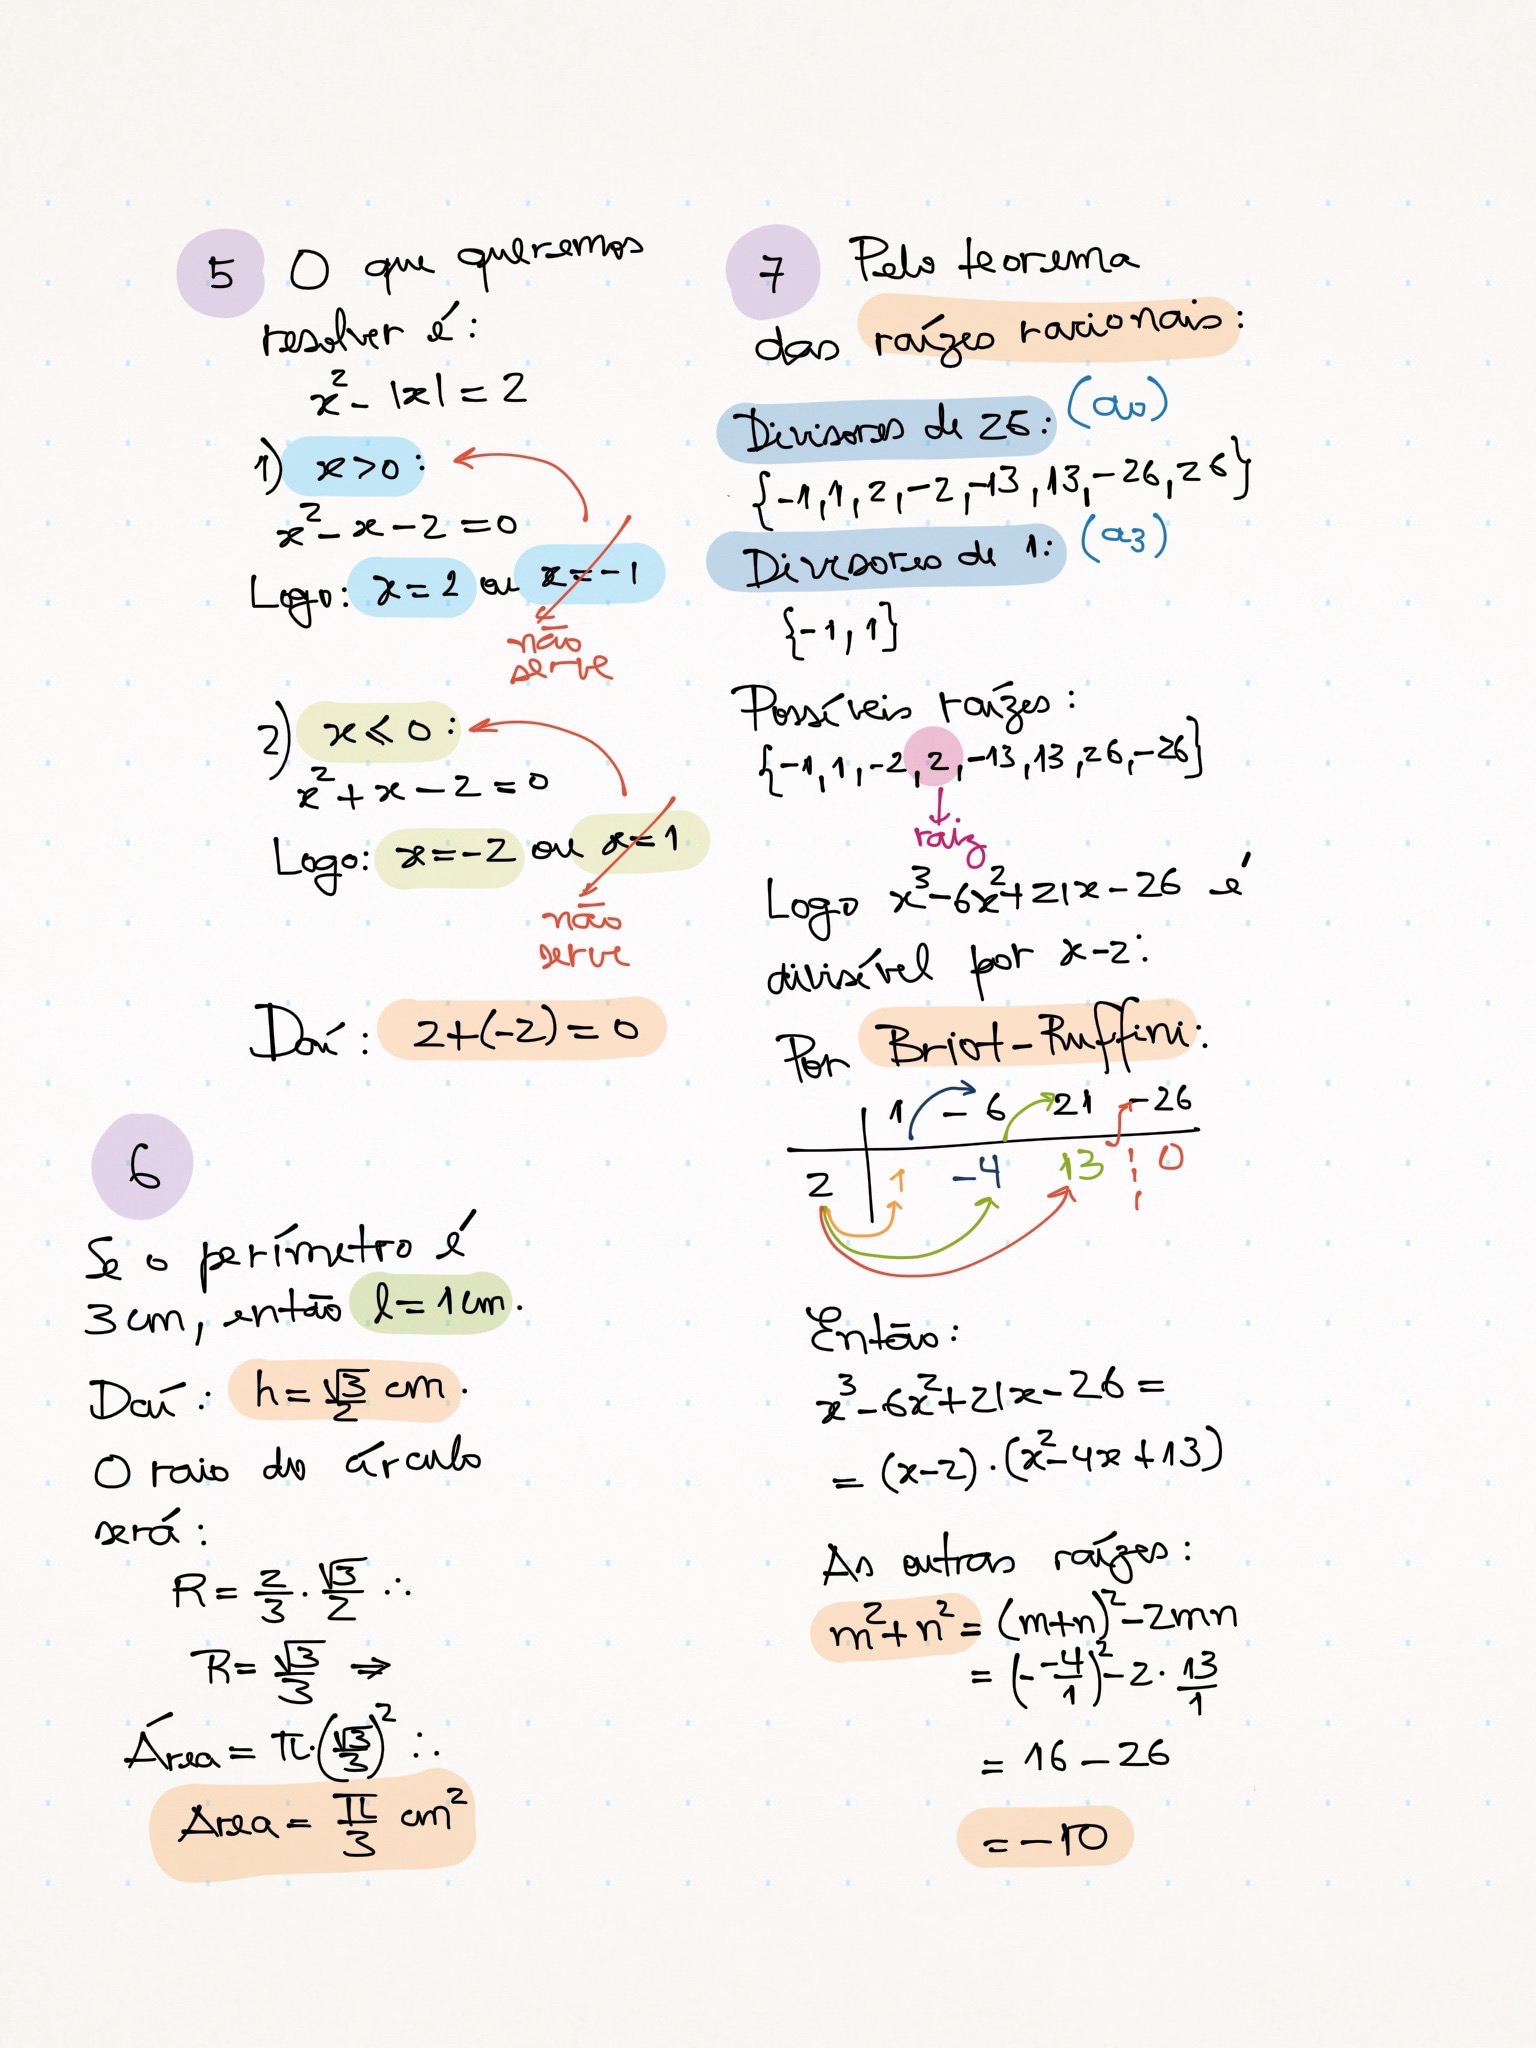 5 O que queremos
resolver é:
x² - |x| = 2
1) x > 0 :
x² - x - 2 = 0
Logo: x = 2 ou x = -1
não
serve
2) x ≤ 0 :
x² + x - 2 = 0
Logo: x = -2 ou x = 1
não
serve
Daí: 2 + (-2) = 0
6
Se o perímetro é
3 cm, então l = 1 cm.
Daí: h = √3/2 cm.
O raio do círculo
será:
R = 2/3 · √3/2 ∴
R = √3/3 ⇒
Área = π·(√3/3)² ∴
Área = π/3 cm²
7 Pelo teorema
das raízes racionais:
Divisores de 26: (a0)
{-1, 1, 2, -2, -13, 13, -26, 26}
Divisores de 1: (a3)
{-1, 1}
Possíveis raízes:
{-1, 1, -2, 2, -13, 13, 26, -26}
raiz
Logo x³ - 6x² + 21x - 26 é
divisível por x-2:
Por Briot-Ruffini:
1 -6 21 -26
2 1 -4 13 0
Então:
x³ - 6x² + 21x - 26 =
= (x-2) · (x² - 4x + 13)
As outras raízes:
m² + n² = (m+n)² - 2mn
= (- -4/1)² - 2 · 13/1
= 16 - 26
= -10